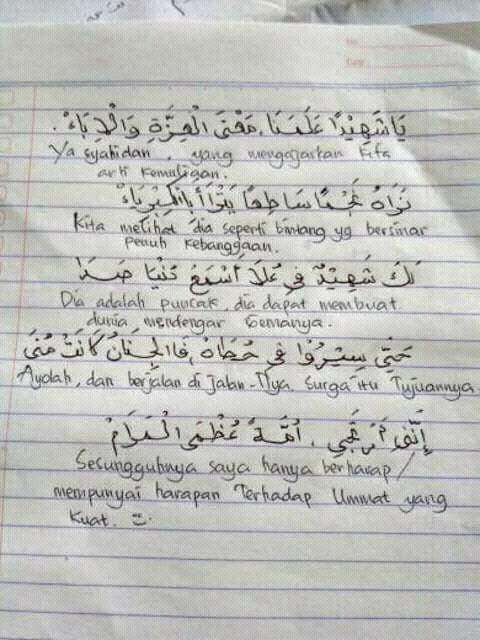 يَا شَهِيْدًا عَلَمَنَا، مَعْنَى الْعِزَّةِ وَالْاِبَاءْ.
Ya syahidan, yang mengajarkan kita
arti kemuligan.
نَرَاهُ نَجْمًا سَاطِعًا يَتَرَاأَ بِالْكِبْرِيَاءْ
Kita melihat dia seperti bintang yg bersinar
penuh kebanggaan.
شَهِيْدٌ فِي عُلَا اَسْمِعُ دُنْيَا صَدَا
Dia adalah puncak, dia dapat membuat
dunia mendengar Gemanya.
حَتَّى سِيْرُوْا فِي خُطَاهْ، فَاالْجِنَانُ كَانَتْ مُنَى
Ayolah, dan berjalan di jalan-Nya. Surga itu Tujuannya.
أُمَّةً عُظْمَى الْمَرَامْ
Sesungguhnya saya hanya berharap/
mempunyai harapan Terhadap Ummat yang
Kuat.